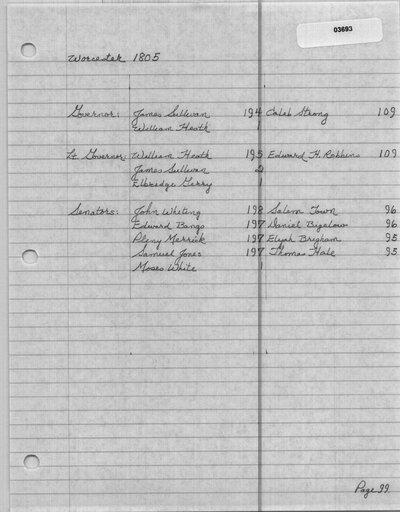 03693
Worcester 1805
Governor: James Sullivan 194 Caleb Strong 109
William Heath 1
Lt Governor: William Heath 195 Edward H. Robbins 109
James Sullivan 2
Elbredge Gerry 1
Senators: John Whiting 198 Salem Town 96
Edward Bangs 197 Daniel Bigelow 96
Pleny Merrick 197 Elijah Brigham 95
Samuel Jones 197 Thomas Hale 95
Moses White 1
Page 99